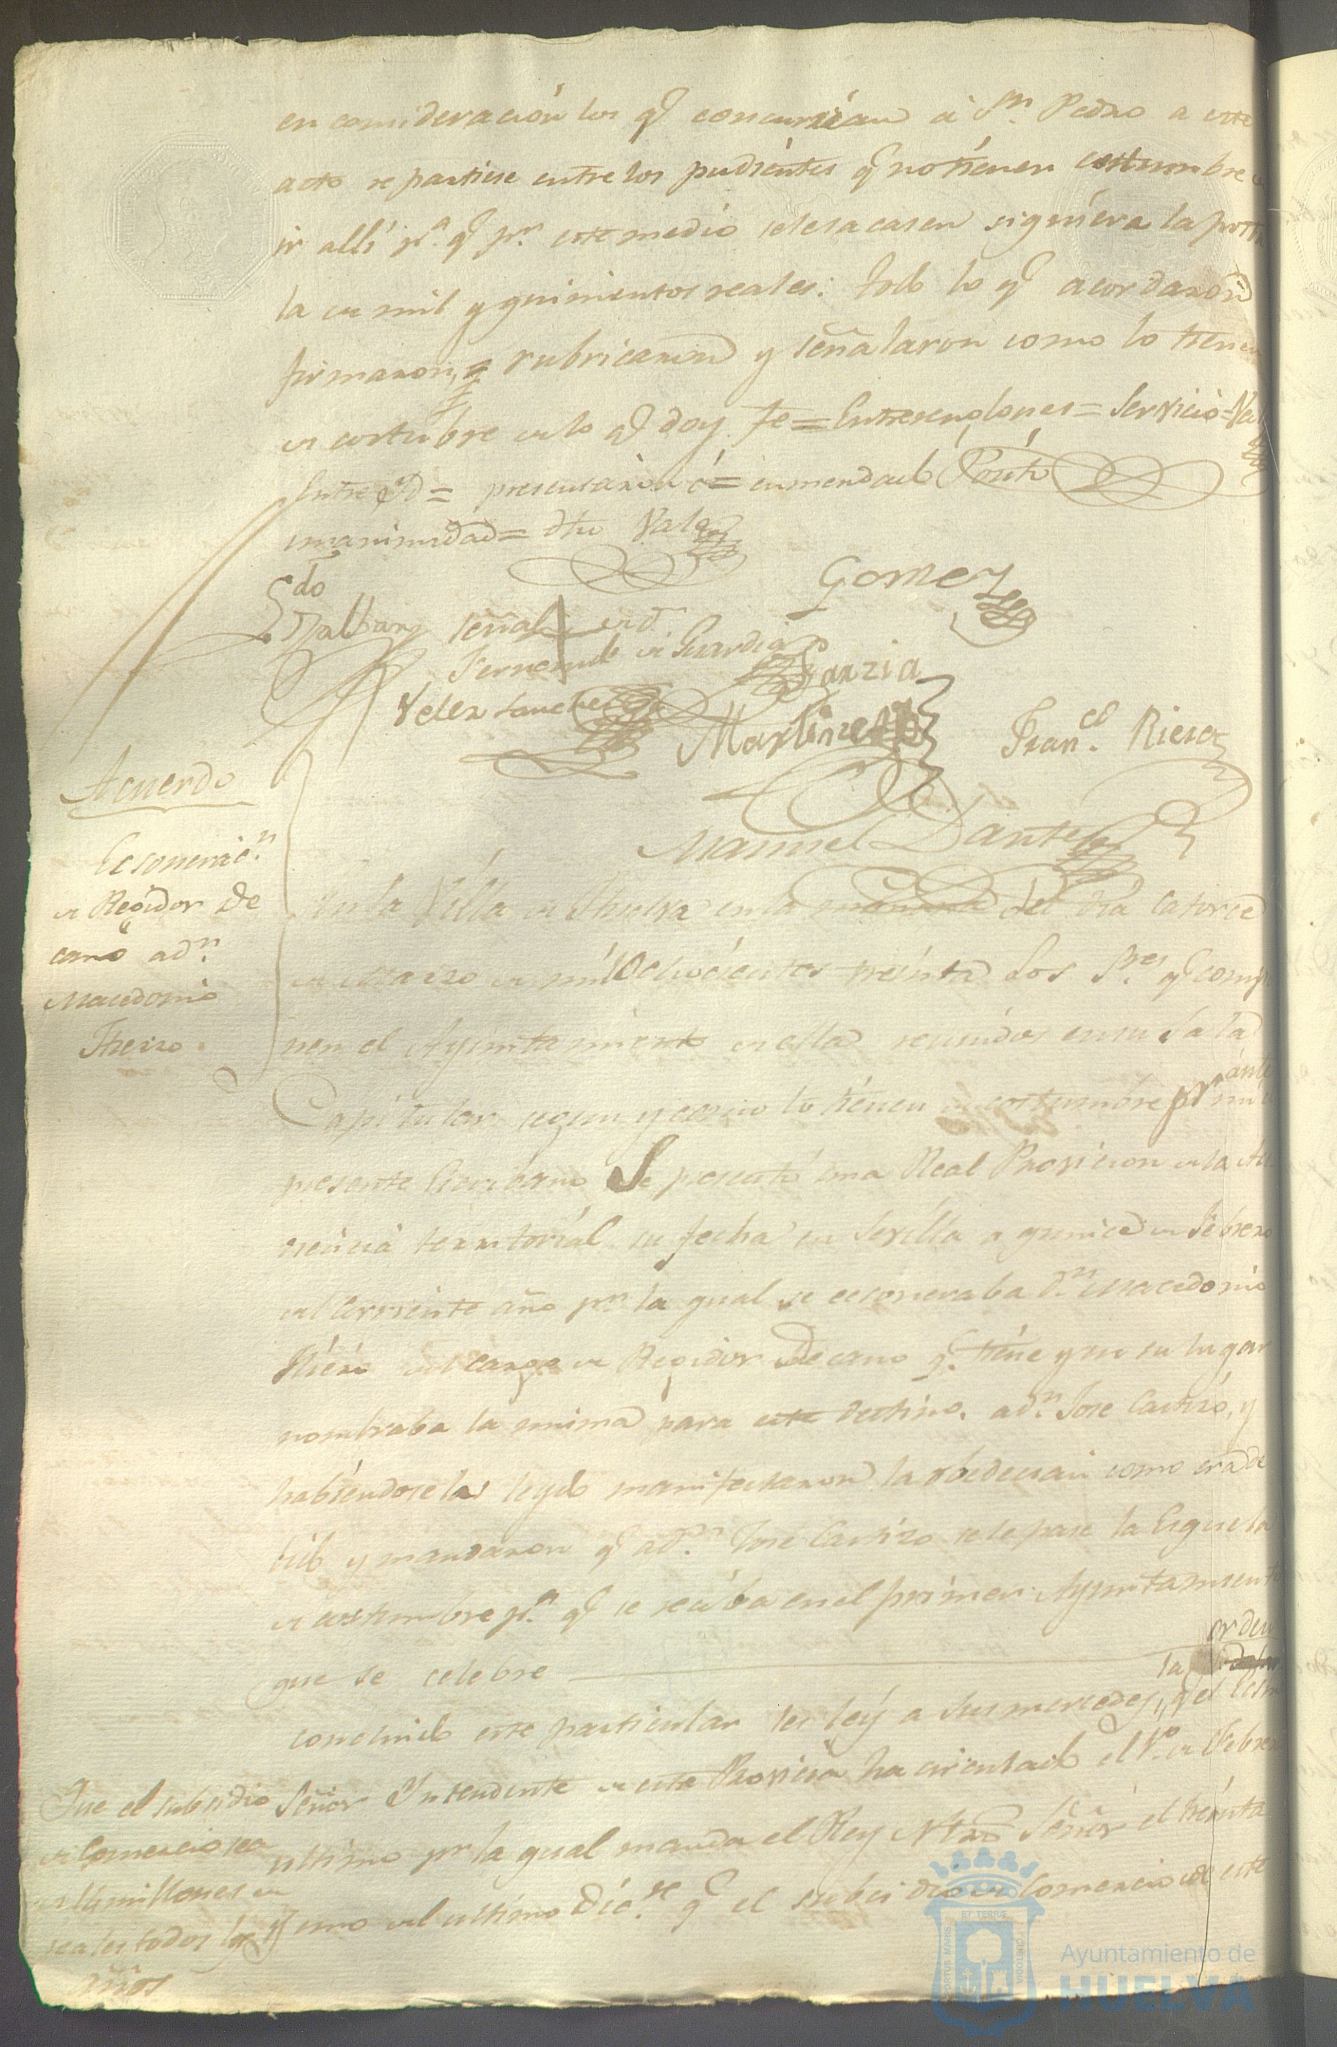 en consideración los q.e concurrían á S.n Pedro a este
acto repartiese entre los pudientes q.e no tienen costumbre
ir allí p.a q.e p.r este medio se les sacasen siquiera la
la de mil y quinientos reales: todo lo q.e acordaron
firmaron, rubricaron y señalaron como lo tienen
de costumbre de lo q.e doy fe = Entrerenglones = Servicio = Val
Entre = presentaron = enmendado
unanimidad = Vale
Gomez
señal de
Fernando de Guardia
Garzia
Velez Sanchez
Martinez
Fran.co Riera
Manuel Dante
Acuerdo
Ecsonerac.n
de Regidor De
cano a d.n
Macedonio
En la Villa de Huelva en la mañana del día catorce
de Marzo de mil ochocientos treinta Los S.res q.e compo
nen el Ayuntamiento de ella reunidos en su Sala
Capitular segun y como lo tienen de costumbre p.r ante mi el
presente Escribano Se presentó una Real Provicion de la Au
diencia territorial su fecha en Sevilla a quince de Febrero
del corriente año p.r la qual se ecsoneraba d.n Macedonio
del cargo de Regidor Decano q.e tiene y en su lugar
nombraba la misma para este destino a d.n José Castizo, y
habiendosela leydo manifestaron la obedecian como era de
bido y mandaron q.e a d.n José Castizo se le pase la Esquela
de costumbre p.a q.e se reciba en el primer Ayuntamiento
que se celebre
orden
Concluido este particular les leý a sus mercedes, la q.e el
Señor Yntendente de esta Provicia ha circulado el 1.o de Febrero
ultimo p.r la qual manda el Rey Ntro Señor el treinta
y uno del ultimo Dic.re q.e el subcidio de Comercio de este
Que el subsidio
de Comercio sea
de millones de
reales todos los
años
PORTUS MARIS ET TERRAE CUSTODIA
Ayuntamiento de
HUELVA